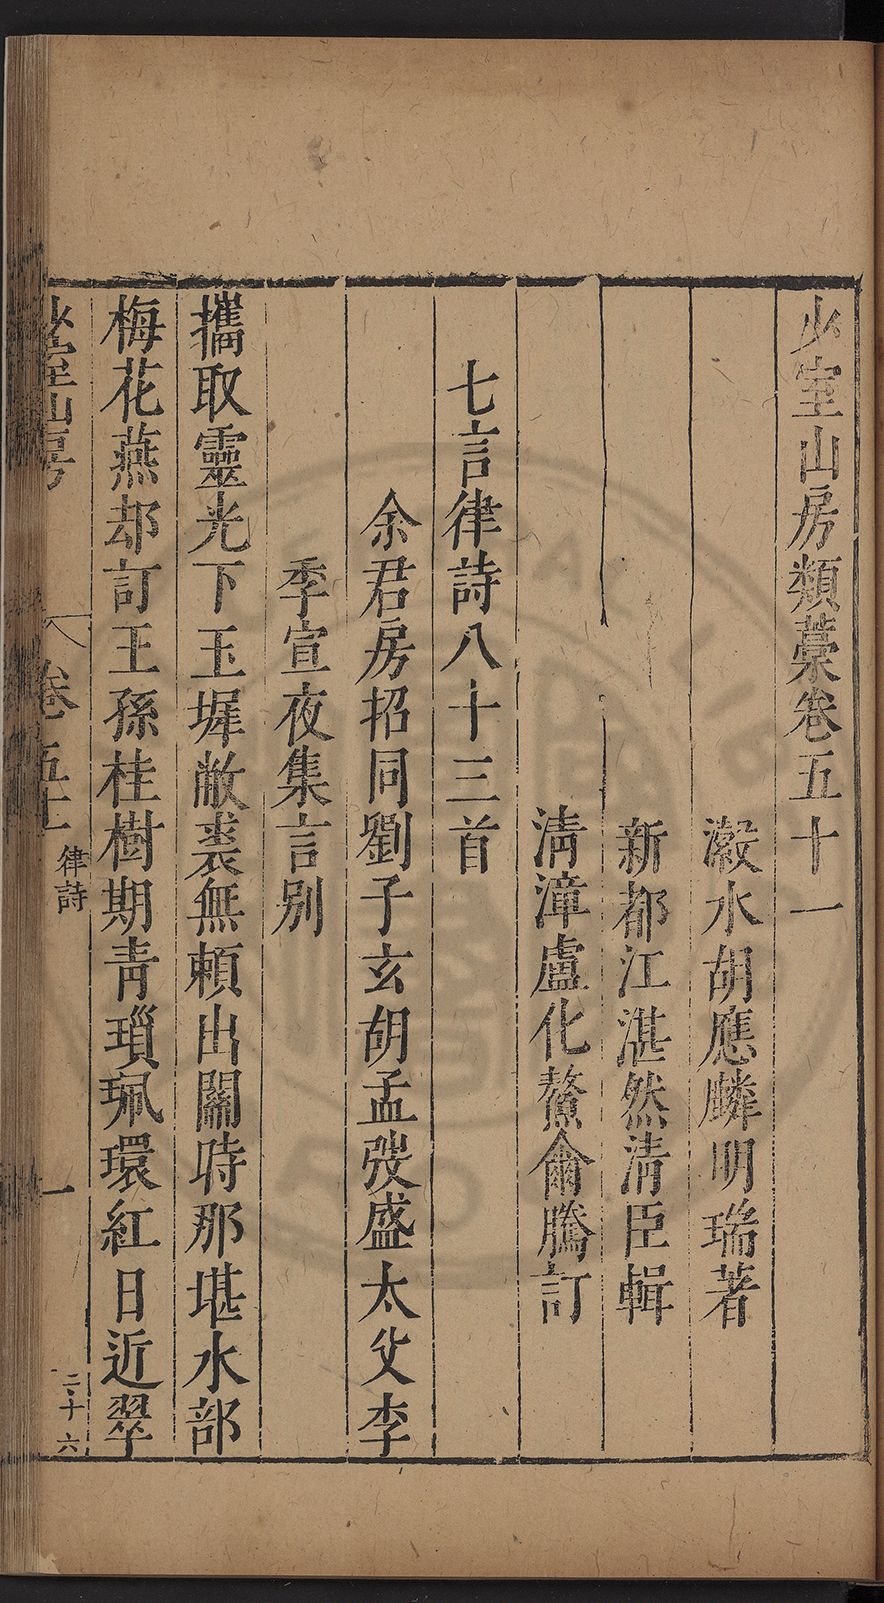 少室山房類藁卷五十一
瀫水胡應麟明瑞著
新都江湛然清臣輯
清漳盧化鰲侖騰訂
七言律詩八十三首
余君房招同劉子玄胡孟弢盛太父李
季宣夜集言别
攜取靈光下玉墀敝裘無賴出關時那堪水部
梅花燕却訂王孫桂樹期青瑣珮環紅日近翠
少室山房
卷五十一
律詩
一
二十六